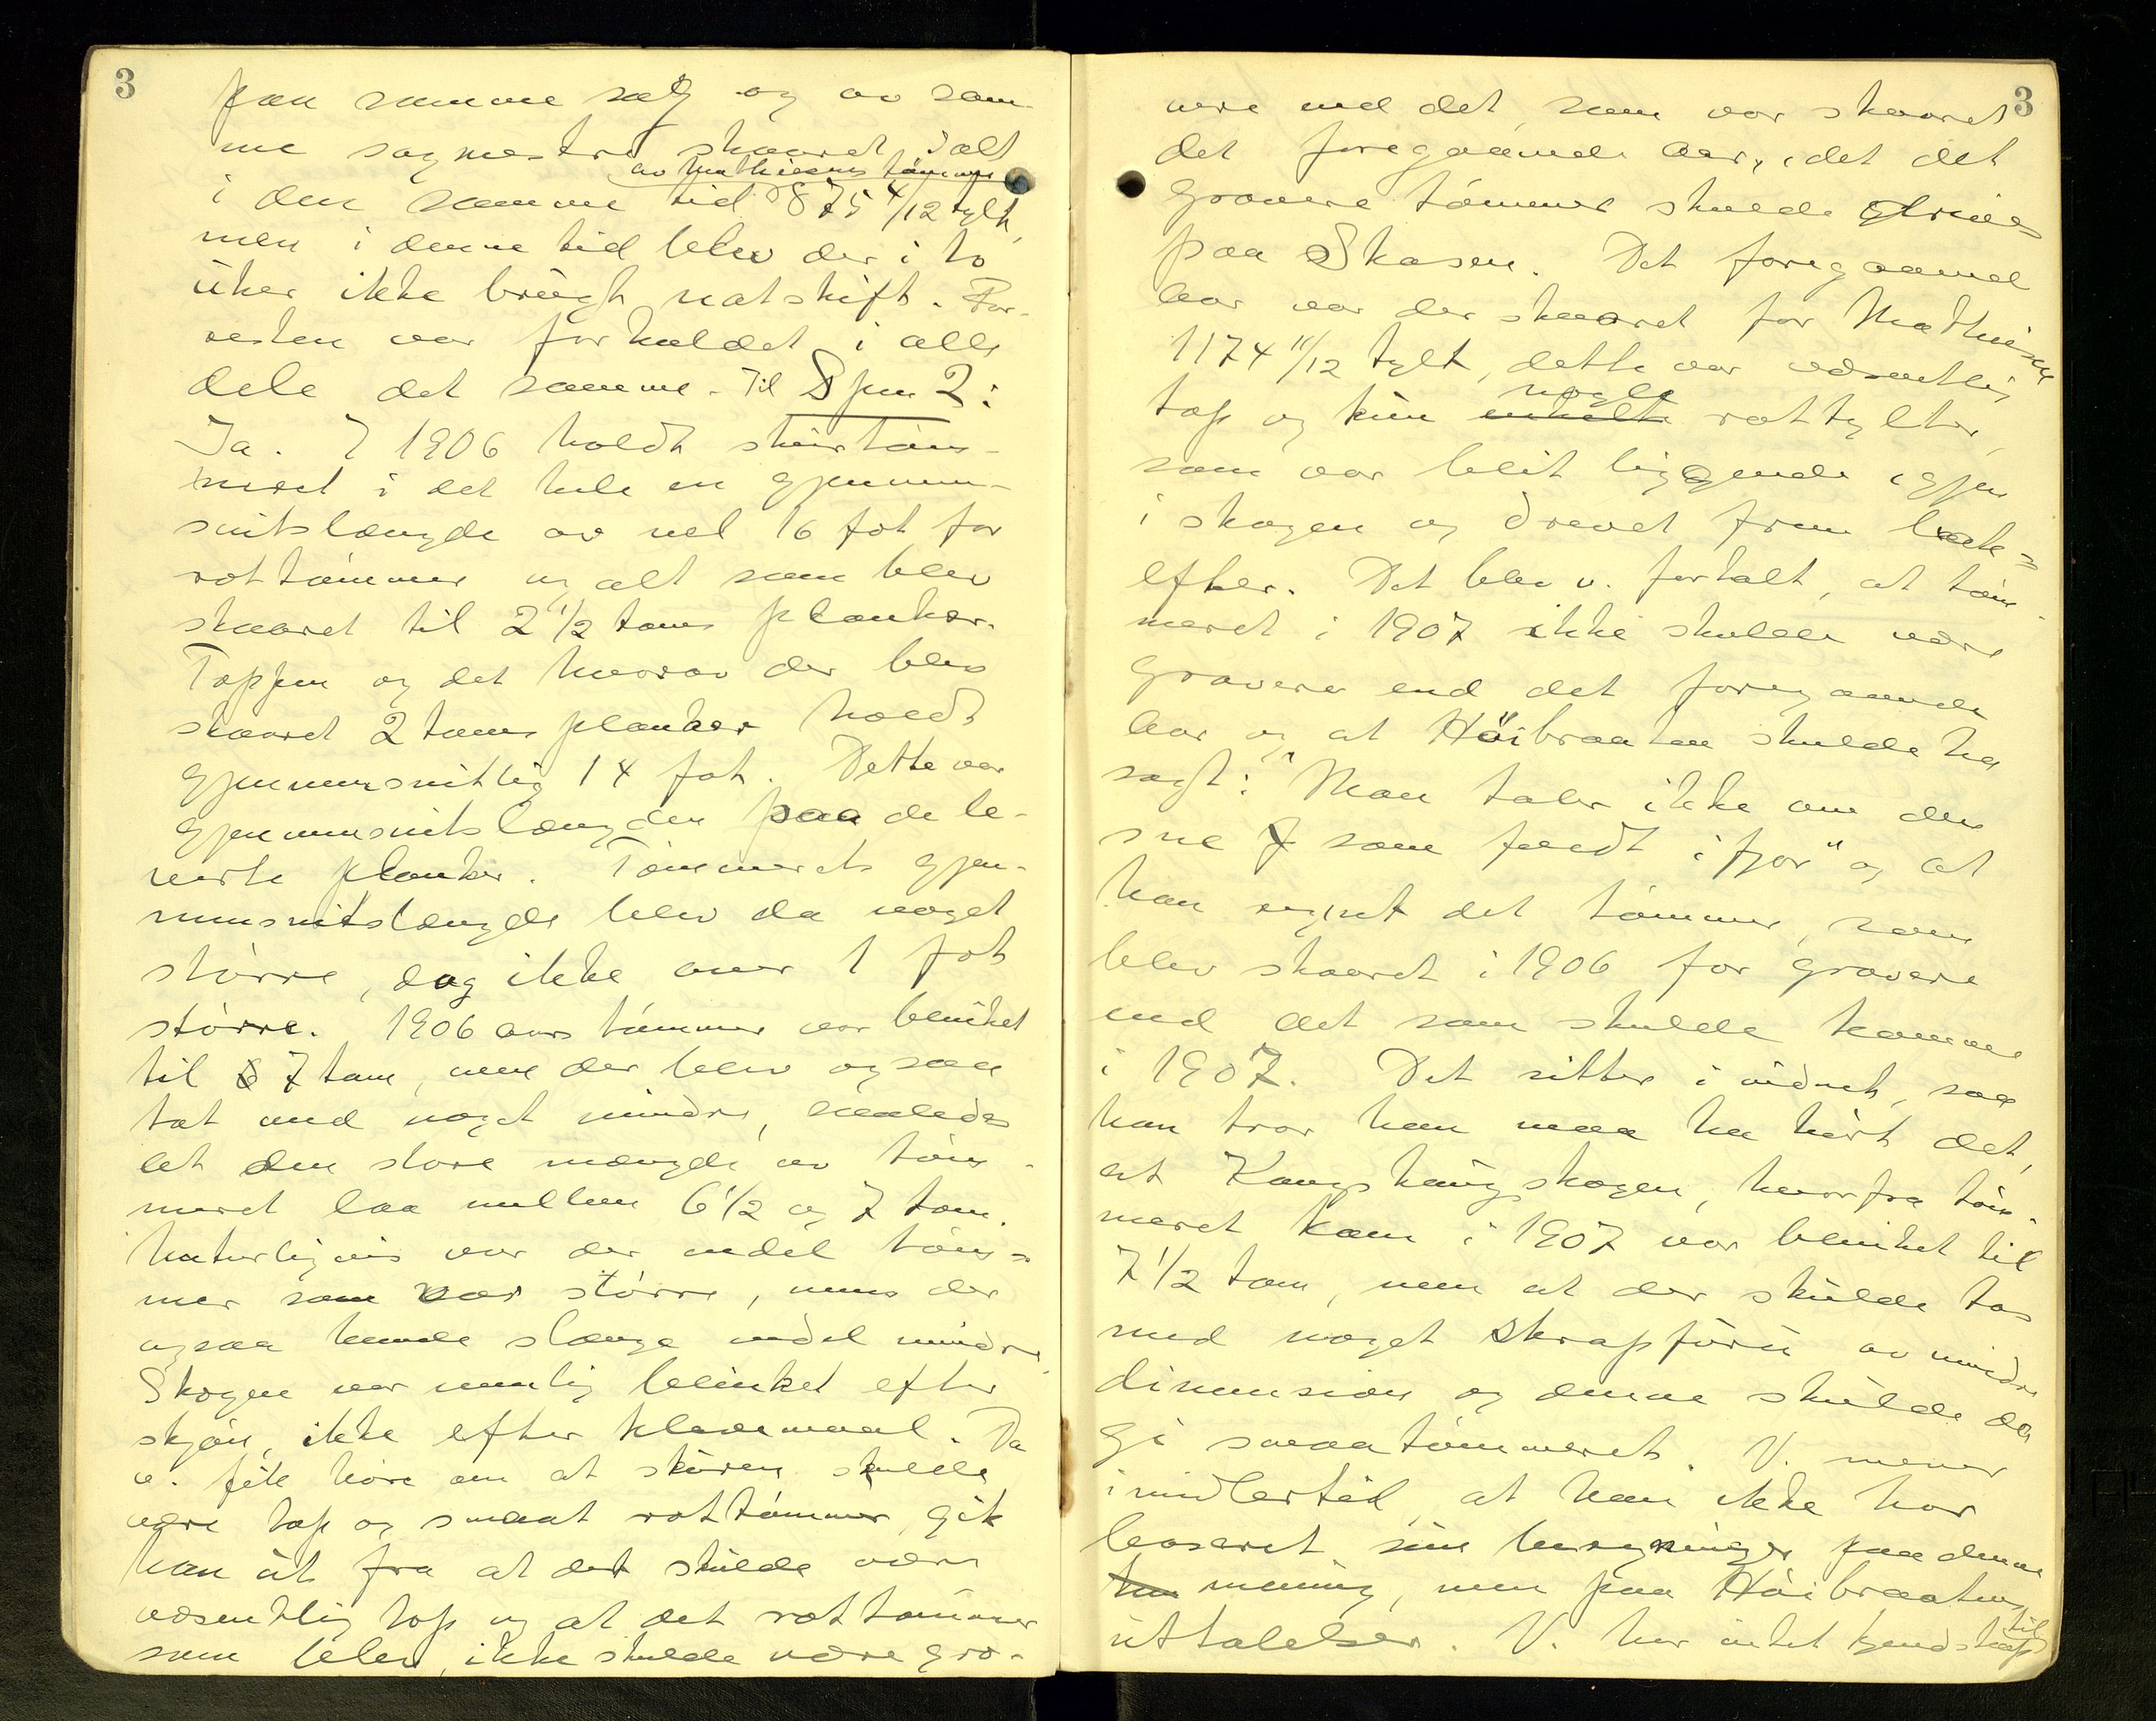 3
paa samme sag og av sam-
me sagmestre skaaret ialt
av Mathiesens tömmer
i den samme tid 875 4/12 tylt,
men i denne tid blev der i to
uker ikke brugt natskift. For-
resten var forholdet i alle
dele det samme. Til Spm 2:
Ja. I 1906 holdt skurtöm-
meret i det hele en gjennem-
snitslængde av vel 16 fot for
rottömmer og alt som blev
skaaret til 2 1/2 toms planker.
Toppen og det hvorav der blev
skaaret 2 toms planker holdt
gjennemsnitlig 14 fot. Dette var
gjennemsnitslængden paa de le-
verte planker. Tömmerets gjen-
nemsnitslængde blev da noget
större, dog ikke over 1 fot
större. 1906 aars tömmer var blinket
til 7 tom, men der blev ogsaa
tat med noget mindre, saaledes
at den store mængde av töm-
meret laa mellem 6 1/2 og 7 tom.
Naturligvis var der endel töm-
mer som var större, mens der
ogsaa kunde slænge endel mindre.
Skogen var nemlig blinket efter
skjön, ikke efter klavemaal. Da
v. fik höre om at skuren skulde
være top og smaat rottömmer, gik
han ut fra at det skulde være
væsentlig top og at det rottömmer
som blev, ikke skulde være gro-
3
vere end det, som var skaaret
det foregaaende aar, idet det
grovere tömmer skulde drives
paa Skasen. Det foregaaende
aar var der skaaret for Mathiesen
1174 11/12 tylt, dette var væsentlig
nogle
top og kun enkelte rottylter,
som var blit liggende igjen
i skogen og drevet frem bak-
efter. Det blev v. fortalt, at töm-
meret i 1907 ikke skulde være
grovere end det foregaaende
aar og at Höibraaten skulde ha
sagt: "Man taler ikke om den
sne som faldt ifjor" og at
han regnet det tömmer, som
blev skaaret i 1906 for grovere
end det som skulde komme
i 1907. Det sitter i vidnet, saa
han tror han maa ha hört det,
at Kongshaugskogen, hvorfra töm-
meret kom i 1907 var blinket til
7 1/2 tom, men at der skulde tas
med noget skrapfuru av mindre
dimension og denne skulde da
gi smaatömmeret. V. mener
imidlertid, at han ikke har
baseret sine beregninger paa denne
mening, men paa Höibraatens
uttalelser. V. har intet kjendskap
til